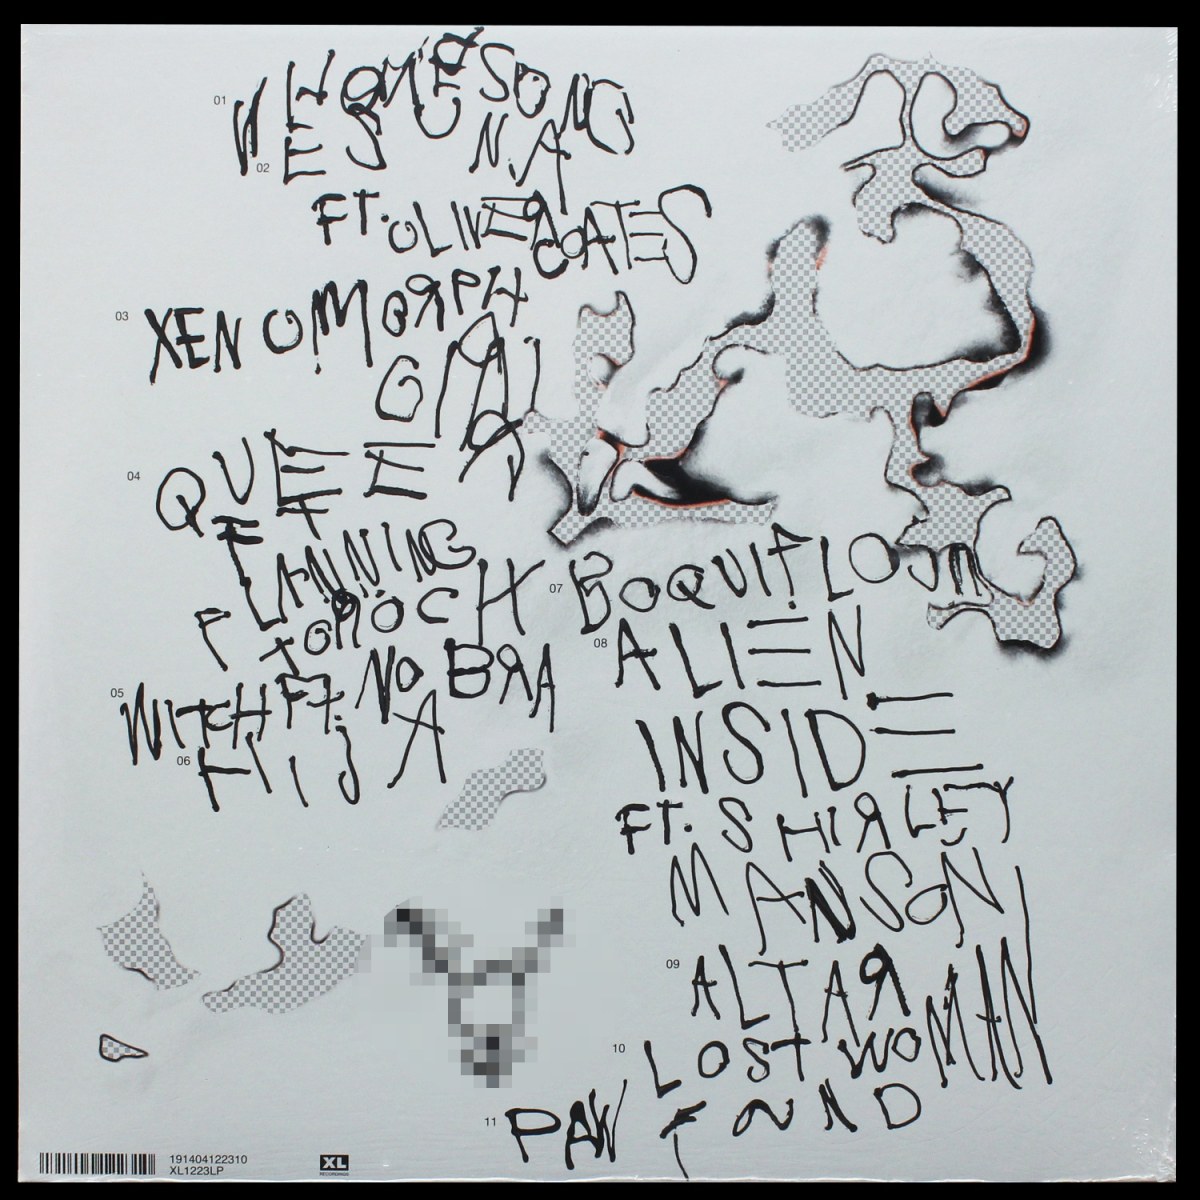 01 WHORESONG
02 ESUNA
FT. OLIVER COATES
03 XENOMORPH
GIRL
04 QUEER
FT
PLANNING
TOROCK
05 WITCH FT. NO BRA
06 HIJA
07 BOQUIFLOJA
08 ALIEN
INSIDE
FT. SHIRLEY
MANSON
09 ALTAR
10 LOST WOMAN
FOUND
11 PAW
191404122310
XL1223LP
XL
RECORDINGS